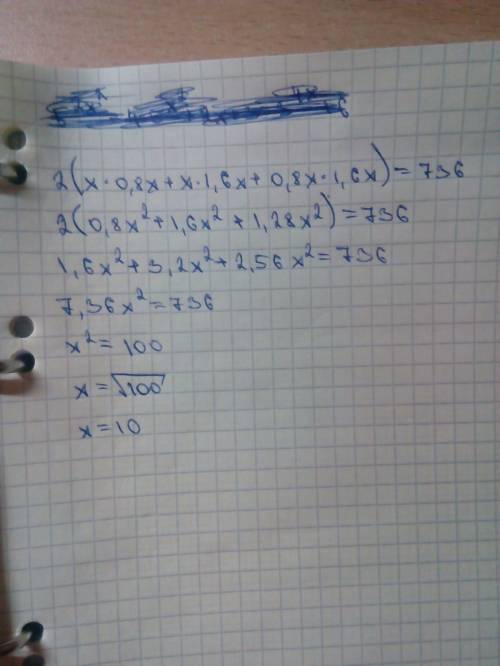 2(x·0,8x+x·1,6x+0,8x·1,6x)=736
2(0,8x²+1,6x²+1,28x²)=736
1,6x²+3,2x²+2,56x²=736
7,36x²=736
x²=100
x=√100
x=10